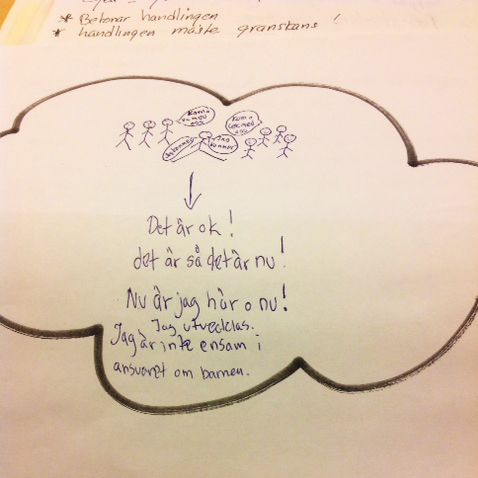 * Betonar handlingen
* handlingen måste granskas !
Kom o
lek med
oss
Kom o
lek med
oss
Jag kommer
Jag
kommer
Det är ok!
det är så det är nu!
Nu är jag här o nu!
Jag utvecklas.
Jag är inte ensam i
ansvaret om barnen.